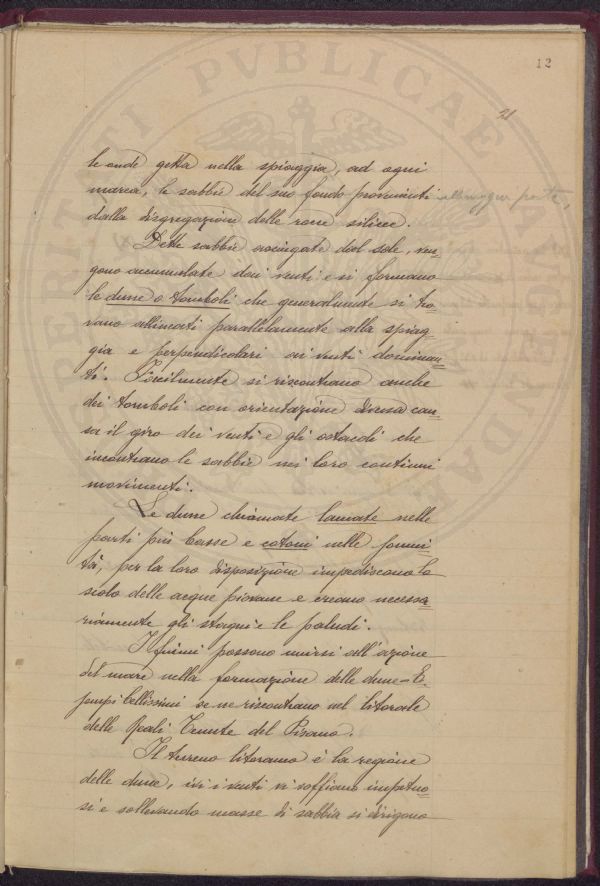 12
21
le onde getta nella spiaggia, ad ogni
marea, le sabbie del suo fondo provenienti
dalla disgregazione delle rocce silicee.
Dette sabbie asciugate dal sole, ven-
gono accumulate dai venti e si formano
le dune o tomboli che generalmente si tro-
vano allineati parallelamente alla spiag-
gia e perpendicolari ai venti dominan-
ti. Facilmente si riscontrano anche
dei tomboli con orientazione diversa cau-
sa il giro dei venti e gli ostacoli che
incontrano le sabbie nei loro continui
movimenti.
Le dune chiamate lamate nelle
parti più basse e cotoni nelle sommi-
tà, per la loro disposizione impediscono lo
scolo delle acque piovane e creano necessa-
riamente gli stagni e le paludi.
I fiumi possono unirsi all'azione
del mare nella formazione delle dune - E-
sempi bellissimi se ne riscontrano nel litorale
delle Reali Tenute del Pisano.
Il terreno litoraneo è la regione
delle dune, ivi i venti vi soffiano impetuo-
si e sollevando masse di sabbia si dirigono
PERITATI PVBLICAE